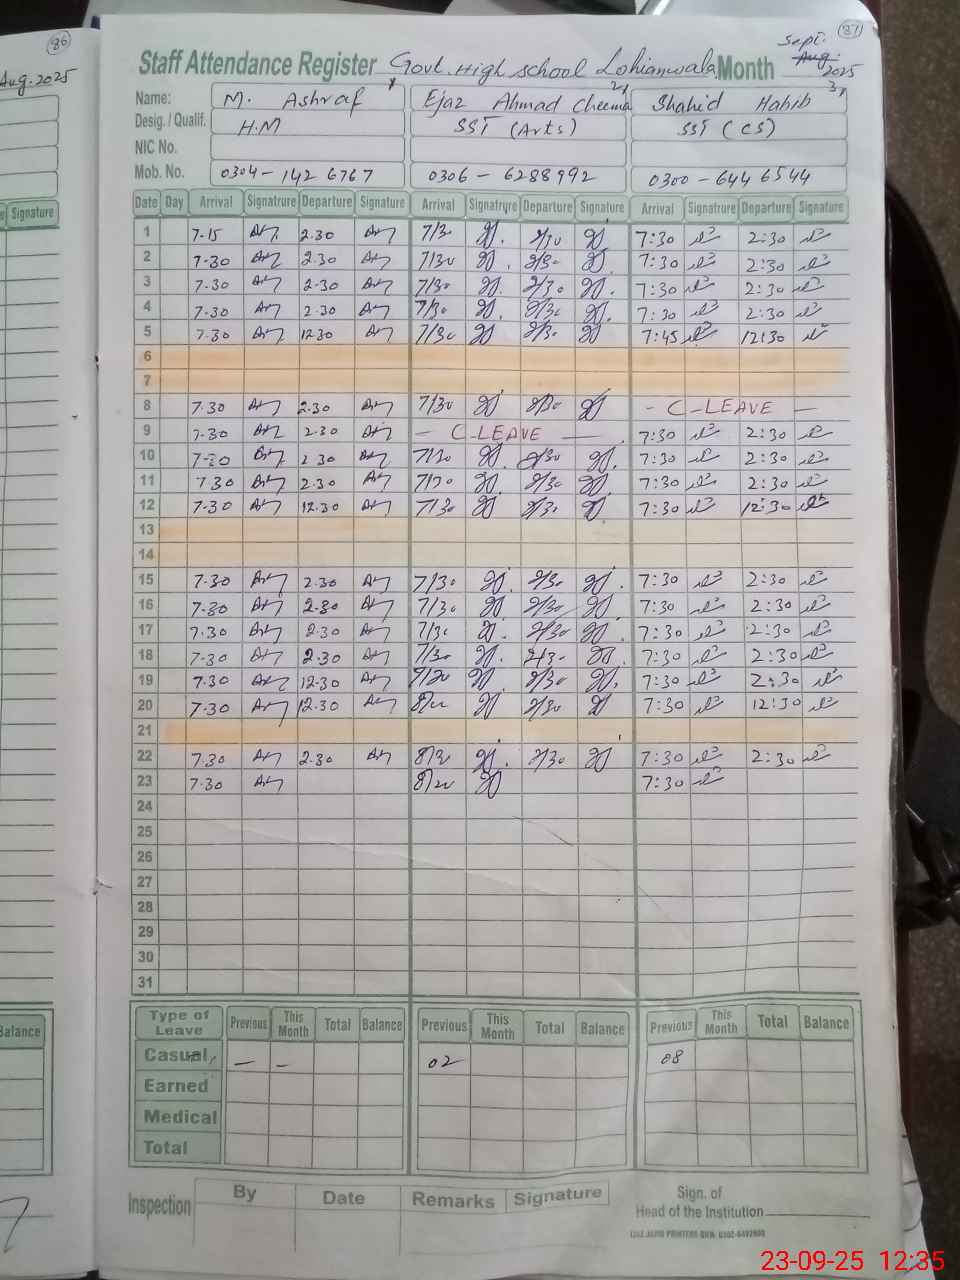 86
Aug. 2025
Signature
Balance
87
Sept.
Aug.
Staff Attendance Register Govt. High school Lohianwala Month 2025
Name: M. Ashraf Ejaz Ahmad Cheema Shahid Habib
Desig. / Qualif. H.M SST (Arts) SST (CS)
NIC No.
Mob. No. 0304-142 6767 0306-6288992 0300-644 6544
Date Day Arrival Signatrure Departure Signature Arrival Signatrure Departure Signature Arrival Signatrure Departure Signature
1 7-15 2.30 7/30 2/30 7:30 2:30
2 7-30 2.30 7/30 2/30 7:30 2:30
3 7-30 2-30 7/30 2/30 7:30 2:30
4 7-30 2-30 7/30 2/30 7:30 2:30
5 7-30 12.30 7/30 2/30 7:45 12:30
6
7
8 7-30 2.30 7/30 2/30 - C-LEAVE -
9 7-30 2.30 - C-LEAVE - 7:30 2:30
10 7-30 2.30 7/30 2/30 7:30 2:30
11 7.30 2.30 7/30 2/30 7:30 2:30
12 7-30 12.30 7/30 2/30 7:30 12:30
13
14
15 7-30 2.30 7/30 2/30 7:30 2:30
16 7-30 2.30 7/30 2/30 7:30 2:30
17 7.30 2.30 7/30 2/30 7:30 2:30
18 7-30 2.30 7/30 2/30 7:30 2:30
19 7.30 12.30 2/30 7:30 2:30
20 7.30 12.30 2/30 7:30 12:30
21
22 7.30 2.30 2/30 7:30 2:30
23 7.30 7:30
24
25
26
27
28
29
30
31
Type of Leave Previous This Month Total Balance Previous This Month Total Balance Previous This Month Total Balance
Casual - - 02 08
Earned
Medical
Total
Inspection By Date Remarks Signature
Sign. of
Head of the Institution
23-09-25 12:35